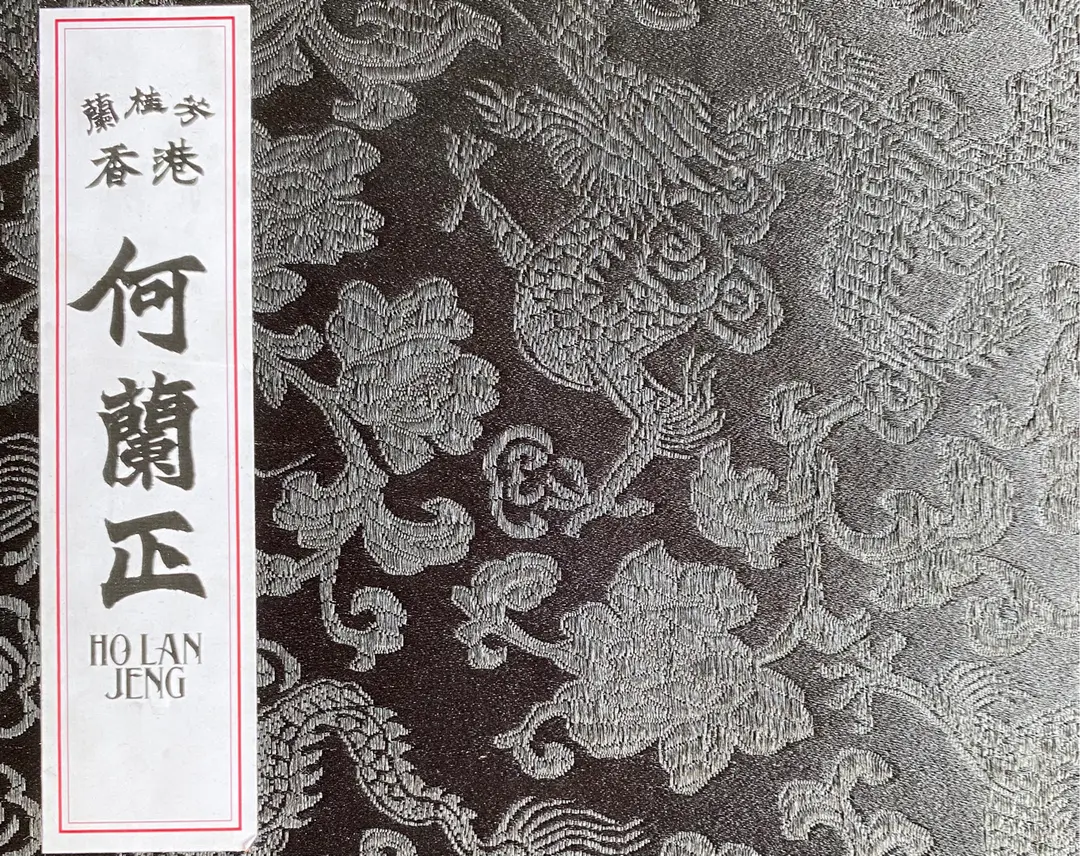 蘭桂芳
香港
何蘭正
HO LAN
JENG